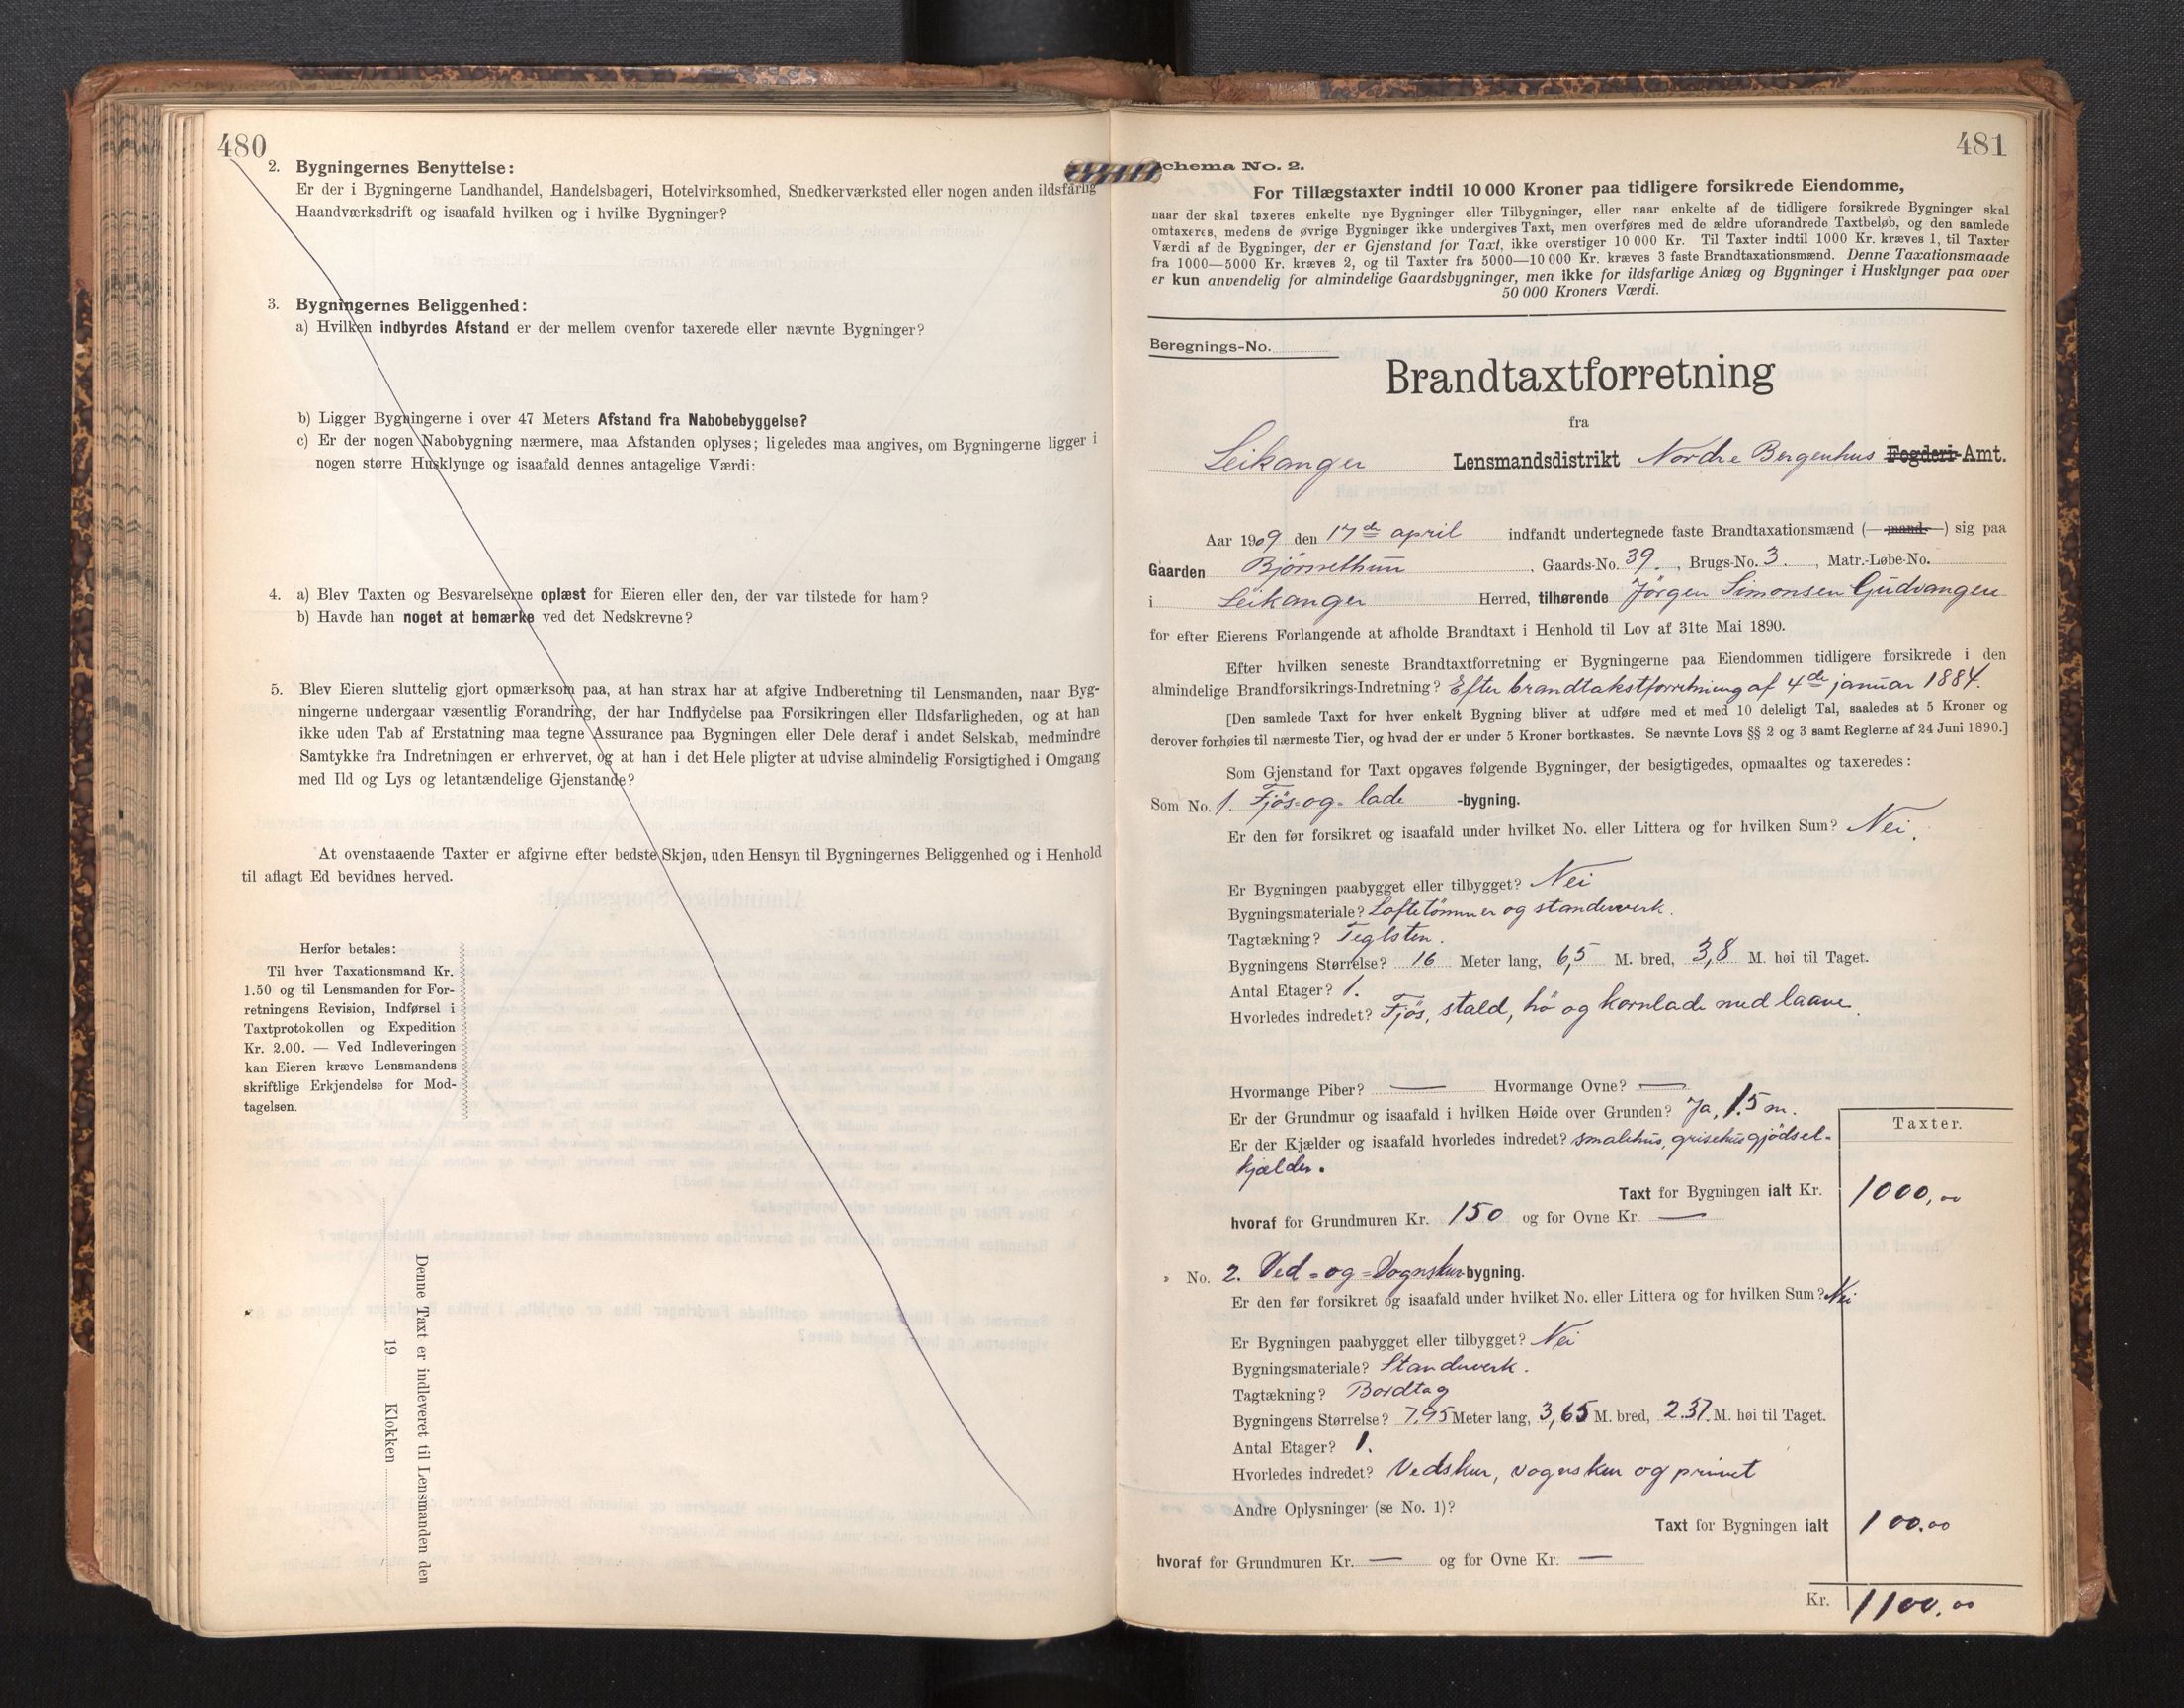 480
2. Bygningernes Benyttelse:
Er der i Bygningerne Landhandel, Handelsbageri, Hotelvirksomhed, Snedkerværksted eller nogen anden ildsfarlig
Haandværksdrift og isaafald hvilken og i hvilke Bygninger?
3. Bygningernes Beliggenhed:
a) Hvilken indbyrdes Afstand er der mellem ovenfor taxerede eller nævnte Bygninger?
b) Ligger Bygningerne i over 47 Meters Afstand fra Nabobebyggelse?
c) Er der nogen Nabobygning nærmere, maa Afstanden oplyses; ligeledes maa angives, om Bygningerne ligger i
nogen større Husklynge og isaafald dennes antagelige Værdi:
4. a) Blev Taxten og Besvarelserne oplæst for Eieren eller den, der var tilstede for ham?
b) Havde han noget at bemærke ved det Nedskrevne?
5. Blev Eieren sluttelig gjort opmærksom paa, at han strax har at afgive Indberetning til Lensmanden, naar Byg-
ningerne undergaar væsentlig Forandring, der har Indflydelse paa Forsikringen eller Ildsfarligheden, og at han
ikke uden Tab af Erstatning maa tegne Assurance paa Bygningen eller Dele deraf i andet Selskab, medmindre
Samtykke fra Indretningen er erhvervet, og at han i det Hele pligter at udvise almindelig Forsigtighed i Omgang
med Ild og Lys og letantændelige Gjenstande?
At ovenstaaende Taxter er afgivne efter bedste Skjøn, uden Hensyn til Bygningernes Beliggenhed og i Henhold
til aflagt Ed bevidnes herved.
Herfor betales:
Til hver Taxationsmand Kr.
1.50 og til Lensmanden for For-
retningens Revision, Indførsel i
Taxtprotokollen og Expedition
Kr. 2.00. — Ved Indleveringen
kan Eieren kræve Lensmandens
skriftlige Erkjendelse for Mod-
tagelsen.
Denne Taxt er indleveret til Lensmanden den
19 Klokken
481
chema No. 2.
For Tillægstaxter indtil 10 000 Kroner paa tidligere forsikrede Eiendomme,
naar der skal taxeres enkelte nye Bygninger eller Tilbygninger, eller naar enkelte af de tidligere forsikrede Bygninger skal
omtaxeres, medens de øvrige Bygninger ikke undergives Taxt, men overføres med de ældre uforandrede Taxtbeløb, og den samlede
Værdi af de Bygninger, der er Gjenstand for Taxt, ikke overstiger 10 000 Kr. Til Taxter indtil 1000 Kr. kræves 1, til Taxter
fra 1000—5000 Kr. kræves 2, og til Taxter fra 5000—10 000 Kr. kræves 3 faste Brandtaxationsmænd. Denne Taxationsmaade
er kun anvendelig for almindelige Gaardsbygninger, men ikke for ildsfarlige Anlæg og Bygninger i Husklynger paa over
50 000 Kroners Værdi.
Beregnings-No.
Brandtaxtforretning
fra
Leikanger Lensmandsdistrikt Nordre Bergenhus Fogderi-Amt.
Aar 1909 den 17de april indfandt undertegnede faste Brandtaxationsmænd (—mand—) sig paa
Gaarden Bjørnethun, Gaards-No. 39., Brugs-No. 3., Matr.-Løbe-No.
i Leikanger Herred, tilhørende Jørgen Simonsen Gudvangen
for efter Eierens Forlangende at afholde Brandtaxt i Henhold til Lov af 31te Mai 1890.
Efter hvilken seneste Brandtaxtforretning er Bygningerne paa Eiendommen tidligere forsikrede i den
almindelige Brandforsikrings-Indretning? Efter brandtakstforretning af 4de januar 1884.
[Den samlede Taxt for hver enkelt Bygning bliver at udføre med et med 10 deleligt Tal, saaledes at 5 Kroner og
derover forhøies til nærmeste Tier, og hvad der er under 5 Kroner bortkastes. Se nævnte Lovs §§ 2 og 3 samt Reglerne af 24 Juni 1890.]
Som Gjenstand for Taxt opgaves følgende Bygninger, der besigtigedes, opmaaltes og taxeredes:
Som No. 1. Fjøs-og-lade -bygning.
Er den før forsikret og isaafald under hvilket No. eller Littera og for hvilken Sum? Nei.
Er Bygningen paabygget eller tilbygget? Nei
Bygningsmateriale? Loftetømmer og standerverk.
Tagtækning? Teglsten.
Bygningens Størrelse? 16 Meter lang, 6,5 M. bred, 3,8 M. høi til Taget.
Antal Etager? 1.
Hvorledes indredet? Fjøs, stald, hø og kornlade med laave.
Hvormange Piber? — Hvormange Ovne? —
Er der Grundmur og isaafald i hvilken Høide over Grunden? Ja, 1.5 m.
Er der Kjælder og isaafald hvorledes indredet? smalehus, grisehus gjødsel-
kjælder.
Taxter.
Taxt for Bygningen ialt Kr. 1000,00
hvoraf for Grundmuren Kr. 150 og for Ovne Kr. —
" No. 2. Ved-og-Vognskur bygning.
Er den før forsikret og isaafald under hvilket No. eller Littera og for hvilken Sum? Nei
Er Bygningen paabygget eller tilbygget? Nei
Bygningsmateriale? Standerverk.
Tagtækning? Bordtag
Bygningens Størrelse? 7.95 Meter lang, 3,65 M. bred, 2.37. M. høi til Taget.
Antal Etager? 1.
Hvorledes indredet? Vedskur, vognskur og privet
Andre Oplysninger (se No. 1)?
Taxt for Bygningen ialt 100.00
hvoraf for Grundmuren Kr. — og for Ovne Kr. —
Kr. 1100.00